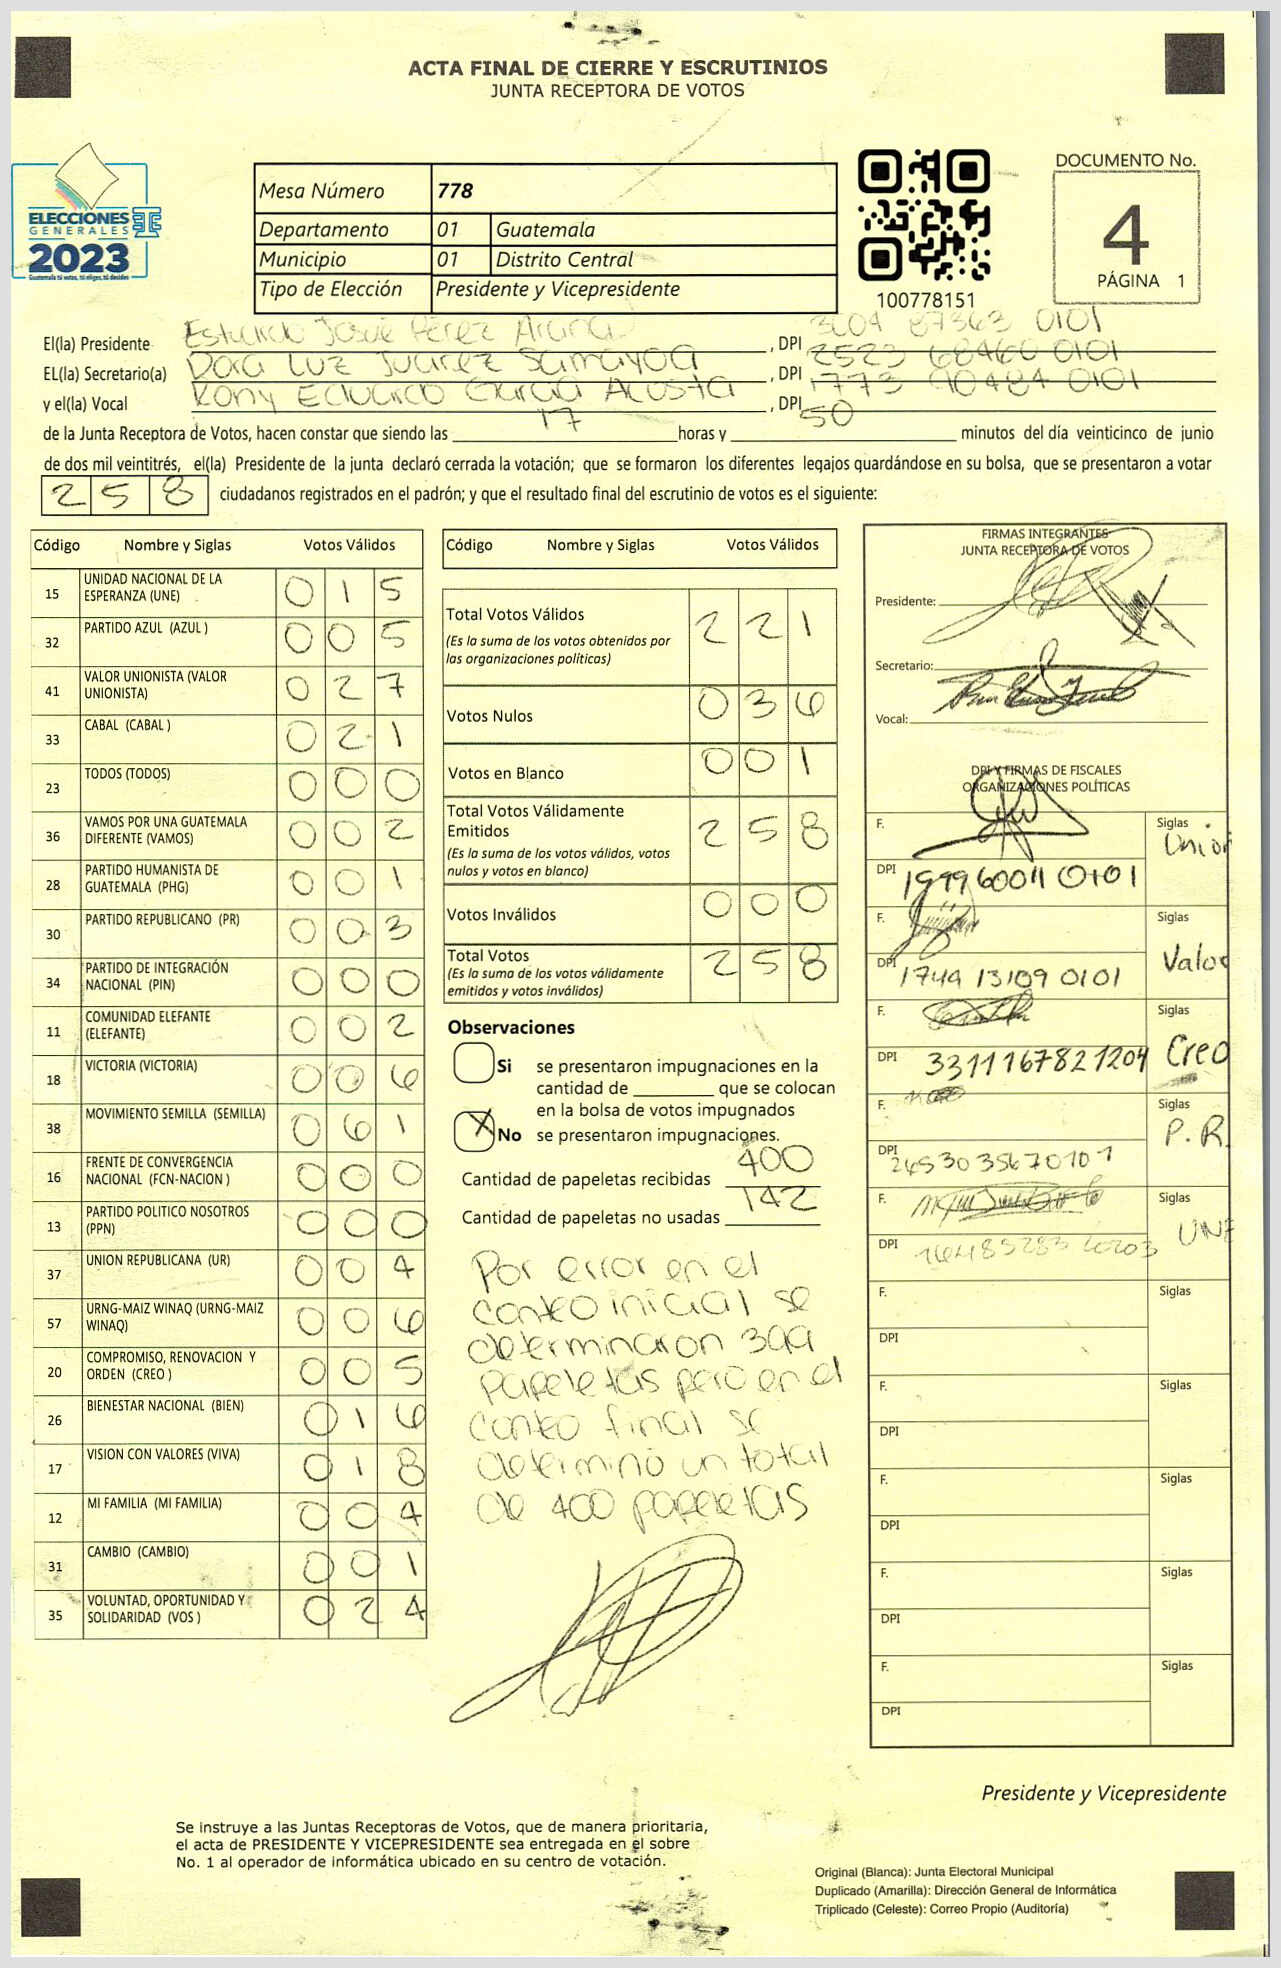 ACTA FINAL DE CIERRE Y ESCRUTINIOS
JUNTA RECEPTORA DE VOTOS
ELECCIONES
GENERALES
2023
Guatemala tú votas, tú eliges, tú decides
Mesa Número 778
Departamento 01 Guatemala
Municipio 01 Distrito Central
Tipo de Elección Presidente y Vicepresidente
100778151
DOCUMENTO No.
4
PÁGINA 1
El(la) Presidente Estuardo Josué Pérez Arana, DPI 3604 87363 0101
EL(la) Secretario(a) Dora Luz Juarez Samayoa, DPI 2523 68460 0101
y el(la) Vocal Rony Eduardo García Acosta, DPI 1773 90484 0101
de la Junta Receptora de Votos, hacen constar que siendo las 17 horas y 50 minutos del día veinticinco de junio
de dos mil veintitrés, el(la) Presidente de la junta declaró cerrada la votación; que se formaron los diferentes legajos guardándose en su bolsa, que se presentaron a votar
258 ciudadanos registrados en el padrón; y que el resultado final del escrutinio de votos es el siguiente:
Código Nombre y Siglas Votos Válidos
15 UNIDAD NACIONAL DE LA ESPERANZA (UNE) 015
32 PARTIDO AZUL (AZUL ) 005
41 VALOR UNIONISTA (VALOR UNIONISTA) 027
33 CABAL (CABAL ) 021
23 TODOS (TODOS) 000
36 VAMOS POR UNA GUATEMALA DIFERENTE (VAMOS) 002
28 PARTIDO HUMANISTA DE GUATEMALA (PHG) 001
30 PARTIDO REPUBLICANO (PR) 003
34 PARTIDO DE INTEGRACIÓN NACIONAL (PIN) 000
11 COMUNIDAD ELEFANTE (ELEFANTE) 002
18 VICTORIA (VICTORIA) 006
38 MOVIMIENTO SEMILLA (SEMILLA) 061
16 FRENTE DE CONVERGENCIA NACIONAL (FCN-NACION ) 000
13 PARTIDO POLITICO NOSOTROS (PPN) 000
37 UNION REPUBLICANA (UR) 004
57 URNG-MAIZ WINAQ (URNG-MAIZ WINAQ) 006
20 COMPROMISO, RENOVACION Y ORDEN (CREO ) 005
26 BIENESTAR NACIONAL (BIEN) 016
17 VISION CON VALORES (VIVA) 018
12 MI FAMILIA (MI FAMILIA) 004
31 CAMBIO (CAMBIO) 001
35 VOLUNTAD, OPORTUNIDAD Y SOLIDARIDAD (VOS ) 024
Código Nombre y Siglas Votos Válidos
Total Votos Válidos 221
(Es la suma de los votos obtenidos por
las organizaciones políticas)
Votos Nulos 036
Votos en Blanco 001
Total Votos Válidamente
Emitidos 258
(Es la suma de los votos válidos, votos
nulos y votos en blanco)
Votos Inválidos 000
Total Votos 258
(Es la suma de los votos válidamente
emitidos y votos inválidos)
Observaciones
Si se presentaron impugnaciones en la
cantidad de ________ que se colocan
en la bolsa de votos impugnados
X No se presentaron impugnaciones.
Cantidad de papeletas recibidas 400
Cantidad de papeletas no usadas 142
Por error en el
conteo inicial se
determinaron 399
papeletas pero en el
conteo final se
determinó un total
de 400 papeletas
FIRMAS INTEGRANTES
JUNTA RECEPTORA DE VOTOS
Presidente:
Secretario:
Vocal:
DPI Y FIRMAS DE FISCALES
ORGANIZACIONES POLÍTICAS
F. Siglas Union
DPI 1999600110101
F. Siglas Valor
DPI 1749 13109 0101
F. Siglas Creo
DPI 3311167821204
F. Siglas P.R.
DPI 2453035670101
F. Siglas UNE
DPI
F. Siglas
DPI
F. Siglas
DPI
F. Siglas
DPI
F. Siglas
DPI
F. Siglas
DPI
Presidente y Vicepresidente
Se instruye a las Juntas Receptoras de Votos, que de manera prioritaria,
el acta de PRESIDENTE Y VICEPRESIDENTE sea entregada en el sobre
No. 1 al operador de informática ubicado en su centro de votación.
Original (Blanca): Junta Electoral Municipal
Duplicado (Amarilla): Dirección General de Informática
Triplicado (Celeste): Correo Propio (Auditoría)